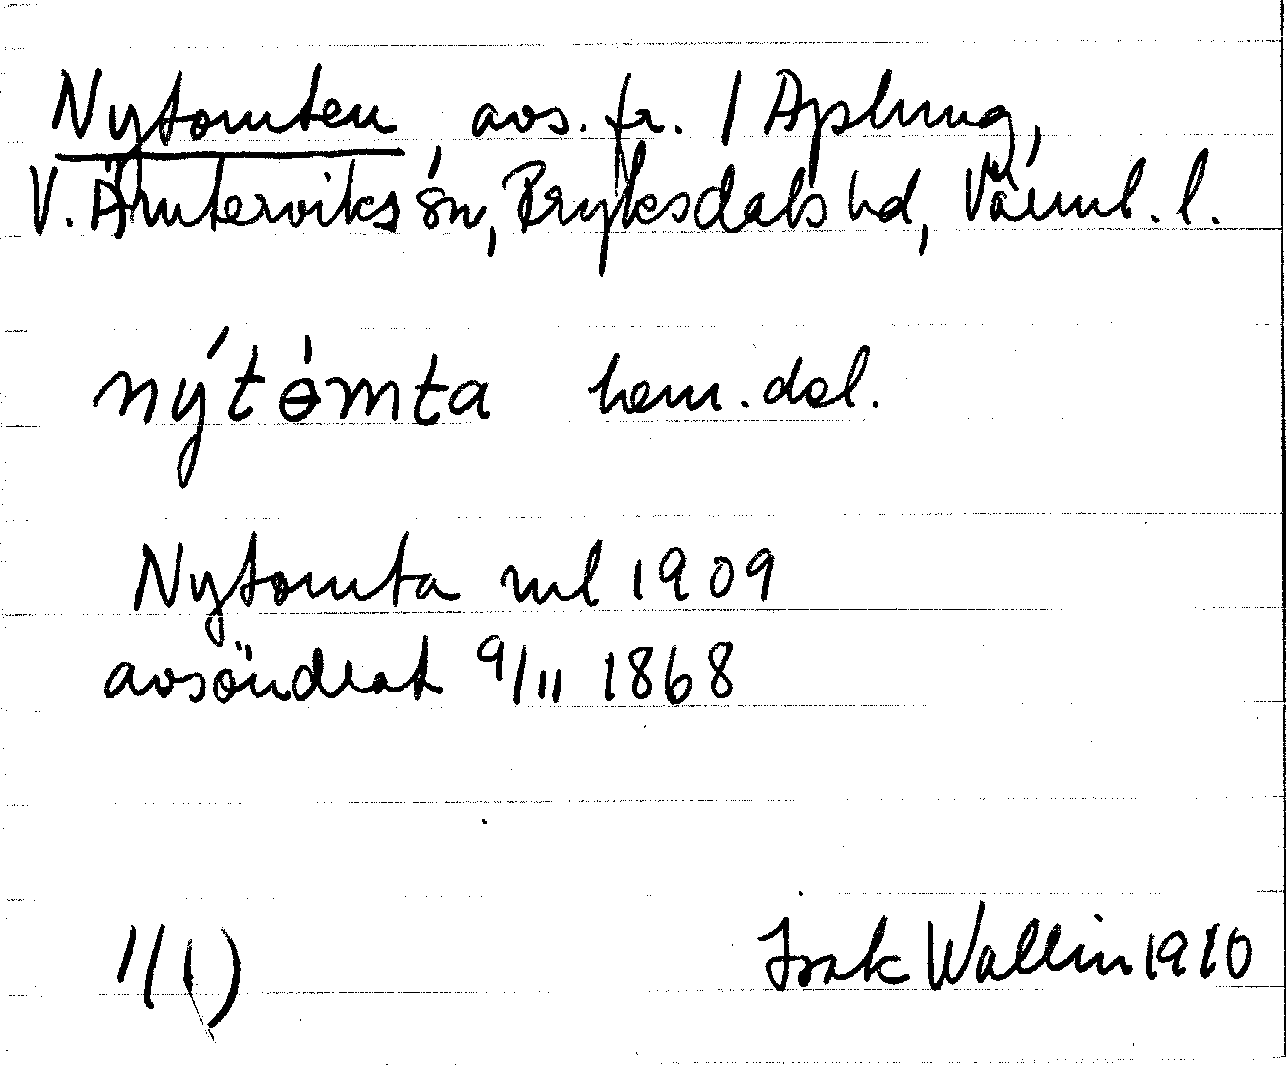 Nytomten, avs. fr. 1 Aplung,
V. Ämterviks sn, Fryksdals hd, Värml. l.
nýtómta hem. dal.
Nytomta ml 1909
avsöndrat 9/11 1868
1/1)
Isak Wallin 1910